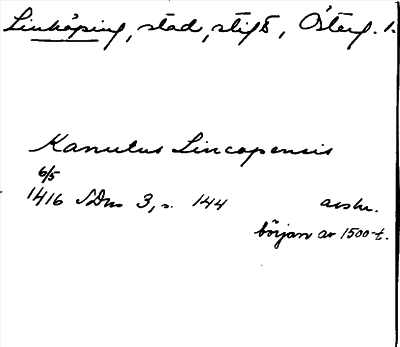 Linköping, stad, stift, Österg. 1.
Kanutus Lincopensis
6/5
1416 SDns 3, s. 144 avskr.
början av 1500-t.